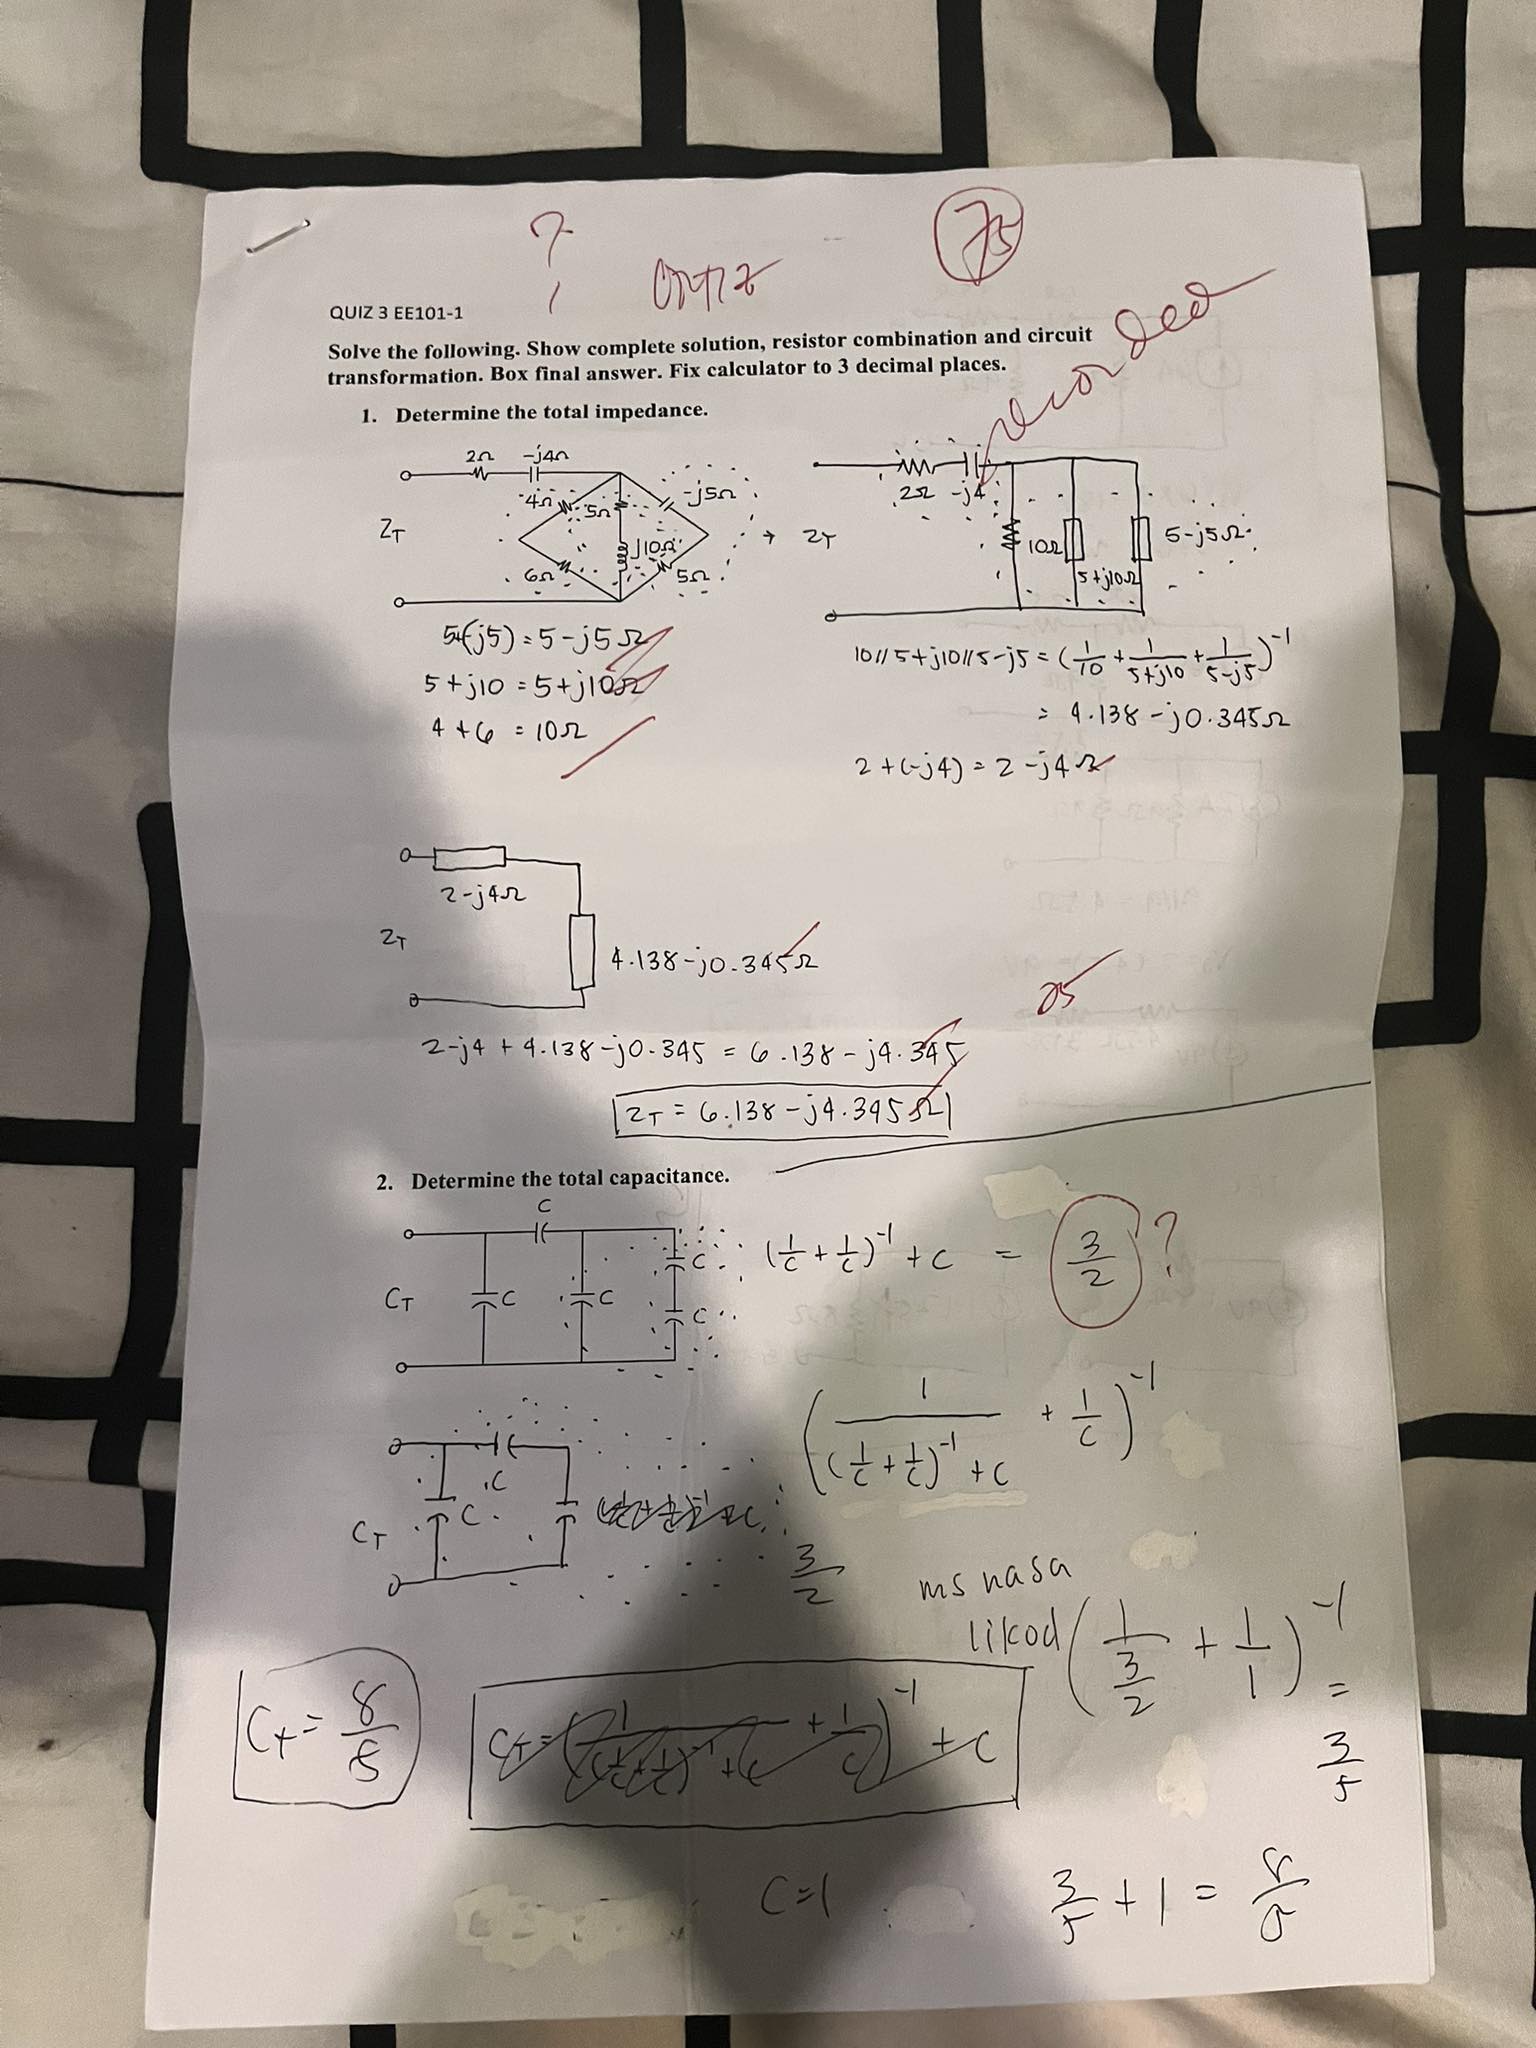 ?
75
recorded
QUIZ 3 EE101-1
Solve the following. Show complete solution, resistor combination and circuit
transformation. Box final answer. Fix calculator to 3 decimal places.
1. Determine the total impedance.
2Ω -j4Ω
4Ω 5Ω -j5Ω
ZT
j10Ω
6Ω 5Ω
→ ZT
2Ω -j4
10Ω 5+j10Ω 5-j5Ω
5+(-j5) = 5-j5Ω
5+j10 = 5+j10Ω
4+6 = 10Ω
10//5+j10//5-j5 = (1/10 + 1/5+j10 + 1/5-j5)⁻¹
= 4.138-j0.345Ω
2+(-j4) = 2-j4Ω
2-j4Ω
ZT
4.138-j0.345Ω
25
2-j4 + 4.138-j0.345 = 6.138-j4.345
ZT = 6.138-j4.345Ω
2. Determine the total capacitance.
C
CT C C C C
(1/C + 1/C)⁻¹ + C = 3/2 ?
(1/((1/C + 1/C)⁻¹ + C) + 1/C)⁻¹
C
CT C
3/2
ms nasa
likod
(1/(3/2) + 1/1)⁻¹ = 3/5
Ct = 8/5
CT = (1/((1/C + 1/C)⁻¹ + C) + 1/C)⁻¹ + C
C=1
3/5 + 1 = 8/5